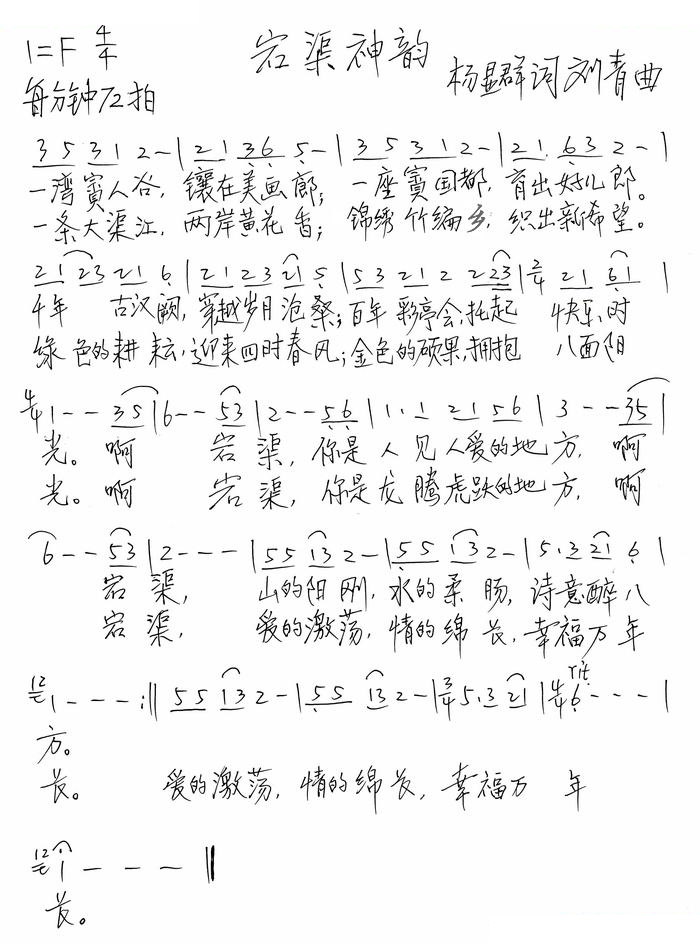 1=F 4/4 宕渠神韵
每分钟72拍 杨显群词 刘青曲
3 5 3 1 2 - | 2 1 3 6 5 - | 3 5 3 1 2 - | 2 1. 6 3 2 - |
一湾賨人谷，镶在美画廊；一座賨国都，育出好儿郎。
一条大渠江，两岸黄花香；锦绣竹编乡，织出新希望。
2 1 2 3 2 1 6 | 2 1 2 3 2 1 5 | 5 3 2 1 2 2 2 3 | 2/4 2 1 6 1 |
千年 古汉阙，穿越岁月沧桑；百年彩亭会，托起 快乐时
绿色的耕耘，迎来四时春风；金色的硕果，拥抱 八面阳
4/4 1 - - 3 5 | 6 - - 5 3 | 2 - - 5 6 | 1. 1 2 1 5 6 | 3 - - 3 5 |
光。啊 宕渠，你是人见人爱的地方，啊
光。啊 宕渠，你是龙腾虎跃的地方，啊
6 - - 5 3 | 2 - - - | 5 5 1 3 2 - | 5 5 1 3 2 - | 5. 3 2 1 6 |
宕渠， 山的阳刚，水的柔肠，诗意醉八
宕渠， 爱的激荡，情的绵长，幸福万年
12 1 - - - :|| 5 5 1 3 2 - | 5 5 1 3 2 - | 3/4 5. 3 2 1 | 4/4 6 - - - | rit
方。
长。 爱的激荡，情的绵长，幸福万 年
12 1 - - - ||
长。